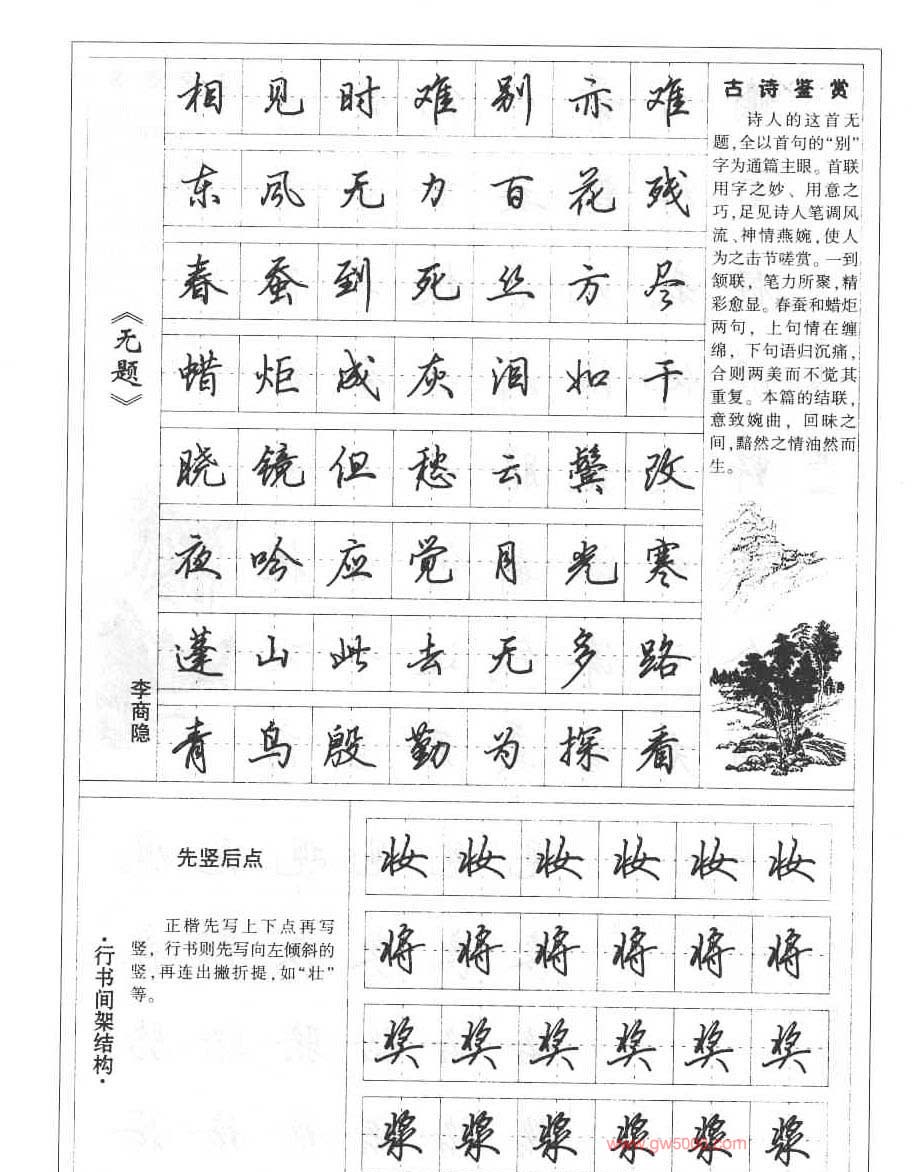 《无题》
李商隐
相见时难别亦难
东风无力百花残
春蚕到死丝方尽
蜡炬成灰泪如干
晓镜但愁云鬓改
夜吟应觉月光寒
蓬山此去无多路
青鸟殷勤为探看
古诗鉴赏
诗人的这首无
题,全以首句的“别”
字为通篇主眼。首联
用字之妙、用意之
巧,足见诗人笔调风
流、神情燕婉,使人
为之击节嗟赏。一到
颔联，笔力所聚,精
彩愈显。春蚕和蜡炬
两句，上句情在缠
绵，下句语归沉痛,
合则两美而不觉其
重复。本篇的结联,
意致婉曲，回味之
间,黯然之情油然而
生。
·行书间架结构·
先竖后点
正楷先写上下点再写
竖，行书则先写向左倾斜的
竖,再连出撇折提,如“壮”
等。
妆妆妆妆妆妆
将将将将将将
奖奖奖奖奖奖
浆浆浆浆浆浆
www.gw5000.com